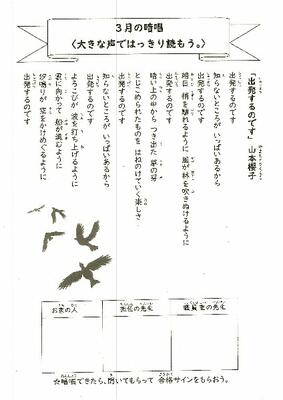 3月の暗唱
〈大きな声ではっきり読もう。〉
「出発するのです」 山本瓔子
出発するのです
知らないところが いっぱいあるから
明日 梢を馳れるように 風が林を吹きぬけるように
出発するのです
暗い土の中から つき出た 草の芽
とじこめられたものを はねのけていく楽しさ
出発するのです
知らないところが いっぱいあるから
出発するのです
よろこびが 波を打ち上げるように
君に向かって 船が進むように
夕鳴りが 空をかけめぐるように
出発するのです
お家の人
担任の先生
職員室の先生
☆暗唱できたら、聞いてもらって 合格サインをもらおう。